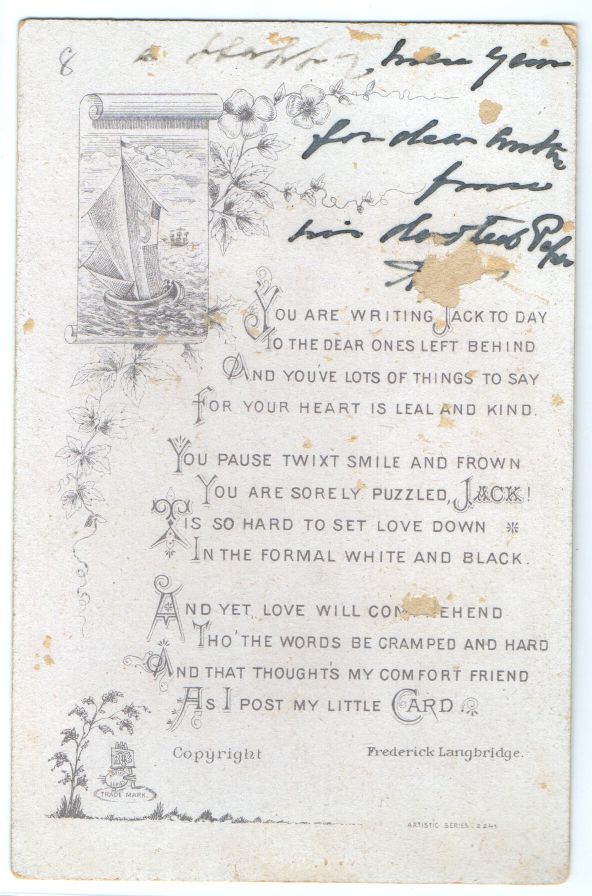 8
a Happy New Year
for dear
from
his devoted
YOU ARE WRITING JACK TO DAY
TO THE DEAR ONES LEFT BEHIND
AND YOU'VE LOTS OF THINGS TO SAY
FOR YOUR HEART IS LEAL AND KIND.
YOU PAUSE TWIXT SMILE AND FROWN
YOU ARE SORELY PUZZLED, JACK!
TIS SO HARD TO SET LOVE DOWN
IN THE FORMAL WHITE AND BLACK.
AND YET LOVE WILL COM EHEND
THO' THE WORDS BE CRAMPED AND HARD
AND THAT THOUGHT'S MY COMFORT FRIEND
AS I POST MY LITTLE CARD
Copyright Frederick Langbridge.
TRADE MARK.
ARTISTIC SERIES. 2241